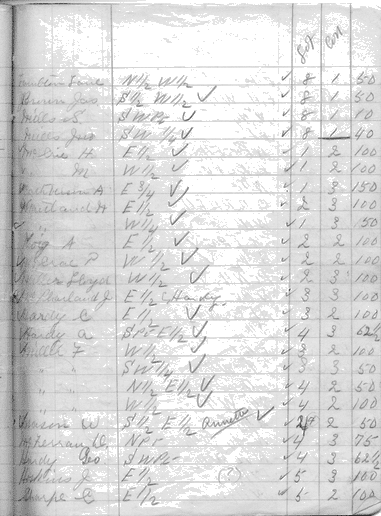 Lot Con
N 1/2 W 1/2 ✓ 8 1 50
Brown Jas S 1/2 W 1/2 ✓ ✓ 8 1 50
Mills S S W Pt ✓ ✓ 8 1 10
Mills S W 1/4 ✓ ✓ 8 1 40
H E 1/2 ✓ ✓ 1 2 100
" M W 1/2 ✓ ✓ 1 2 100
A E 3/4 ✓ ✓ 1 3 150
Maitland H E 1/2 ✓ ✓ 2 3 100
" " W 1/4 ✓ ✓ 1 3 50
A E 1/2 ✓ ✓ 2 2 100
P W 1/2 ✓ ✓ 2 2 100
Lloyd W 1/2 ✓ ✓ 2 3 100
J E 1/2 (Handy. ✓ 3 3 100
Hardy C E 1/2 ✓ ✓ 3 2 100
Hardy A S Pt E 1/2 ✓ ✓ 4 3 62 1/2
F W 1/2 ✓ ✓ 3 2 100
" " S W 1/4 ✓ ✓ 3 3 50
" " N 1/2 E 1/2 ✓ ✓ 4 2 50
" " W 1/2 ✓ ✓ 4 2 100
W S 1/2 E 1/2 Annett ✓ ✓ 4 2 50
N Pt ✓ 4 3 75
Hardy Geo S W Pt ✓ 4 3 62 1/2
J E 1/2 (?) ✓ 5 3 100
Sharpe C E 1/2 ✓ 5 2 100